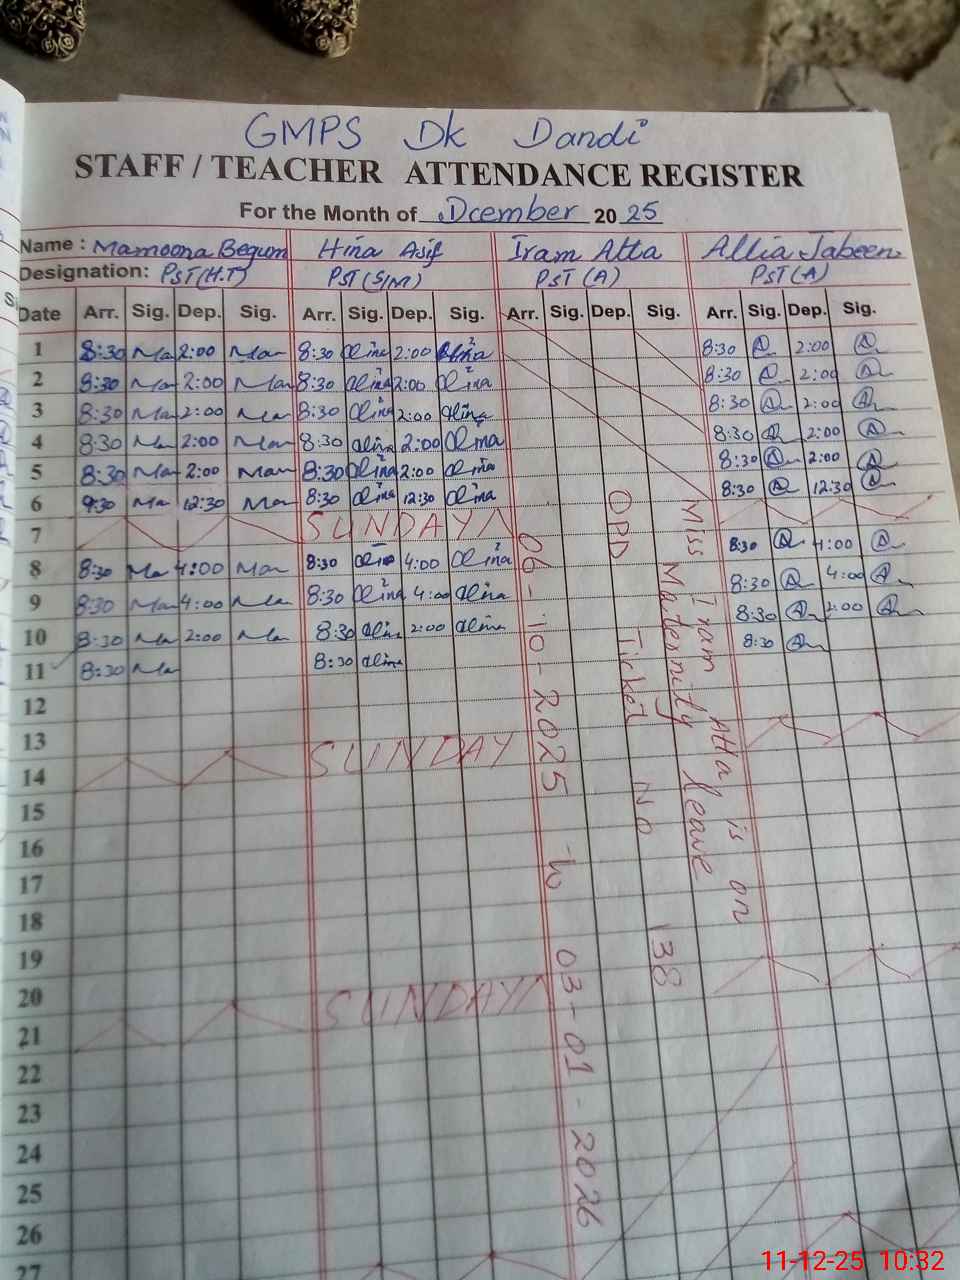 GMPS Dk Dandi
STAFF / TEACHER ATTENDANCE REGISTER
For the Month of Dcember 20 25
Name : Mamoona Begum Hina Asif Iram Atta Allia Jabeen
Designation: PST (H.T) PST (S/M) PST (A) PST (A)
Date Arr. Sig. Dep. Sig. Arr. Sig. Dep. Sig. Arr. Sig. Dep. Sig. Arr. Sig. Dep. Sig.
1 8:30 Ma 2:00 Mam 8:30 Hina 2:00 Hina 8:30 A 2:00 A
2 8:30 Ma 2:00 Mam 8:30 Hina 2:00 Hina 8:30 A 2:00 A
3 8:30 Ma 2:00 Mam 8:30 Hina 2:00 Hina 8:30 A 2:00 A
4 8:30 Ma 2:00 Mam 8:30 Hina 2:00 Hina 8:30 A 2:00 A
5 8:30 Ma 2:00 Mam 8:30 Hina 2:00 Hina 8:30 A 2:00 A
6 9:30 Ma 12:30 Mam 8:30 Hina 12:30 Hina 8:30 A 12:30 A
7 SUNDAY
8 8:30 Ma 4:00 Mam 8:30 Hina 4:00 Hina 8:30 A 4:00 A
9 8:30 Ma 4:00 Mam 8:30 Hina 4:00 Hina 8:30 A 4:00 A
10 8:30 Ma 2:00 Mam 8:30 Hina 2:00 Hina 8:30 A 2:00 A
11 8:30 Ma 8:30 Hina 8:30 A
12
13
14 SUNDAY
15
16
17
18
19
20
21 SUNDAY
22
23
24
25
26
27
Miss Iram Atta is on
Maternity leave
OPD Ticket No 138
06-10-2025 to 03-01-2026
11-12-25 10:32